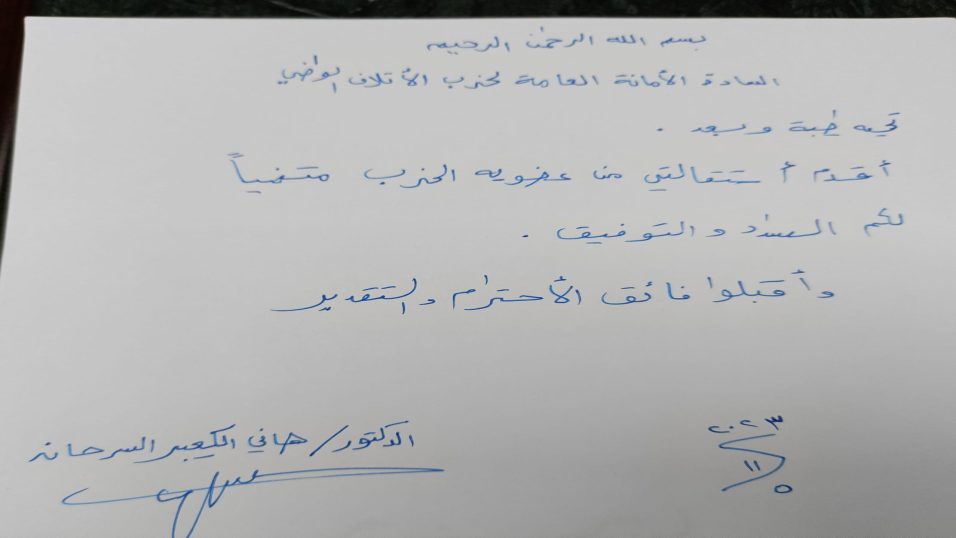 بسم الله الرحمن الرحيم
السادة الأمانة العامة لحزب الأتلاف الوطني
تحيه طيبة وبعد .
أقدم أستقالتي من عضويه الحزب متمنياً
لكم السداد والتوفيق .
وأقبلوا فائق الأحترام والتقدير
الدكتور/ هاني السرحان
٢٠٢٣
١١
٥